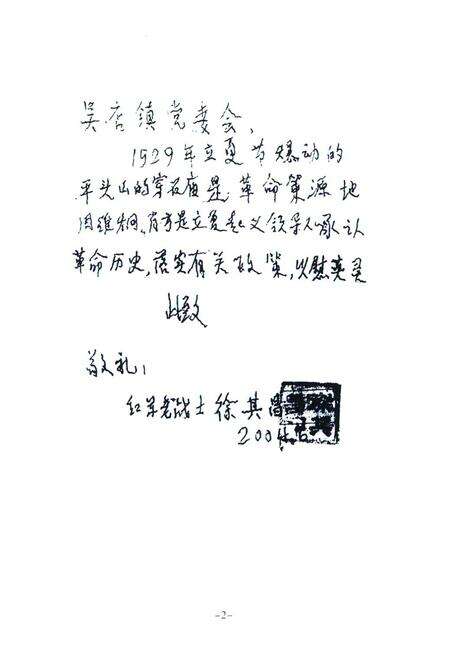 吴店镇党委会、
1929年立夏节爆动的
平头山的穿石庙是革命策源地
周维炯、肖方是立夏起义领导人承认
革命历史,落实有关政策,以慰英灵
此致
敬礼!
红军老战士 徐其昌
2004.
-2-